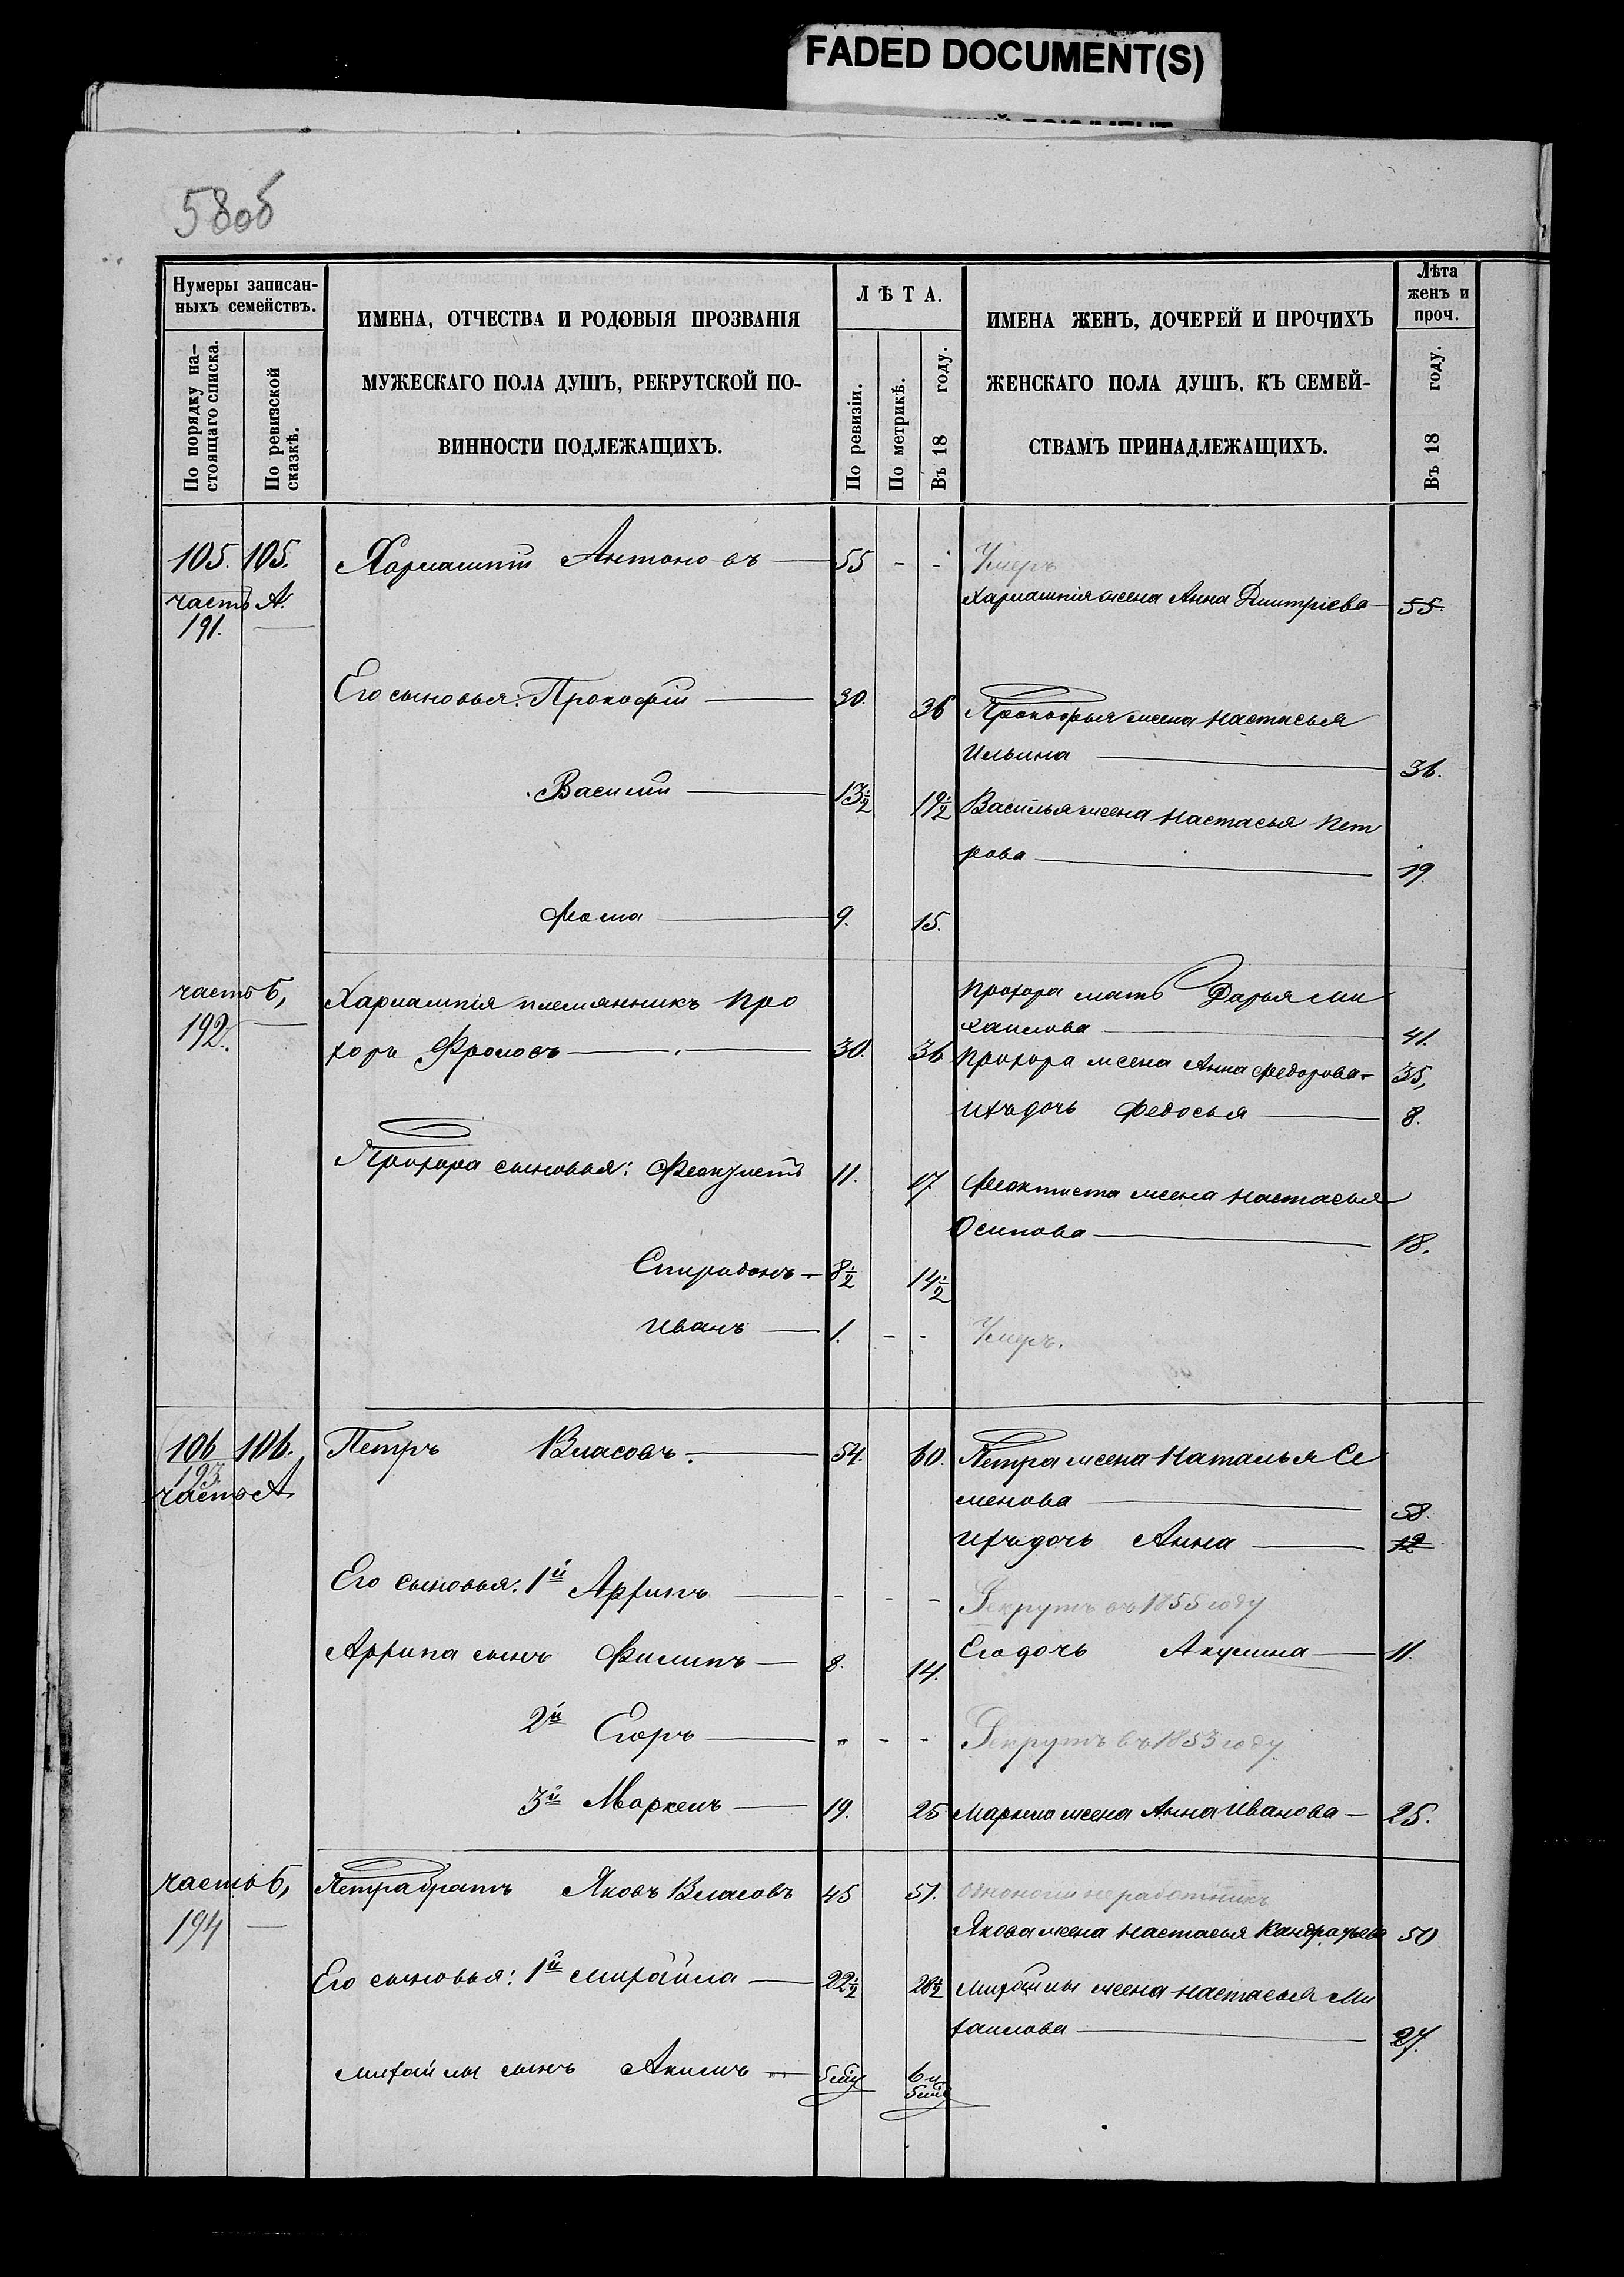 FADED DOCUMENT(S)
58об
Нумеры записан-
ныхъ семействъ.
По порядку на-
стоящаго списка.
По ревизской
сказкѣ.
ИМЕНА, ОТЧЕСТВА И РОДОВЫЯ ПРОЗВАНІЯ
МУЖЕСКАГО ПОЛА ДУШЪ, РЕКРУТСКОЙ ПО-
ВИННОСТИ ПОДЛЕЖАЩИХЪ.
ЛѢТА.
По ревизіи.
По метрикѣ.
Въ 18 году.
ИМЕНА ЖЕНЪ, ДОЧЕРЕЙ И ПРОЧИХЪ
ЖЕНСКАГО ПОЛА ДУШЪ, КЪ СЕМЕЙ-
СТВАМЪ ПРИНАДЛЕЖАЩИХЪ.
Лѣта
женъ и
проч.
Въ 18 году.
105. 105. Харлампій Антоновъ — 55 - - Умеръ
часть А. Харлампія жена Анна Дмитріева — 55.
191. —
Его сыновья: Прокофій — 30. 36 Прокофья жена Настасья
Ильина — 36.
Василій — 13½ 19½ Василья жена Настасья Пет
рова — 19.
Фома — 9. 15.
часть б, Харлампія племянникъ Про Прохора мать Дарья Ми
192. — хайлова — 41.
хоръ Фроловъ — 30. 36 Прохора жена Анна Федорова - 35,
Ихъ дочь Федосья — 8.
Прохора сыновья: Феоктистъ 11. 17 Феоктиста жена Настасья
Осипова — 18.
Спиридонъ - 8½ 14½
Иванъ — 1. - - Умеръ.
106 106. Петръ Власовъ. — 54. 60. Петра жена Наталья Се
193.
часть А менова — 58.
Ихъ дочь Анна — 12
Его сыновья: 1й Архипъ — - - - Рекрутъ въ 1855 году
Архипа сынъ Филипъ — 8. 14. Его дочь Акулина — 11.
2й Егоръ — - - - Рекрутъ въ 1853 году
3й Маркелъ — 19. 25 Маркела жена Анна Иванова — 25.
часть б, Петра братъ Яковъ Власовъ 45 51. одноногій неработникъ
194 — Якова жена Настасья Кандратьева 50
Его сыновья: 1й Михайла — 22½ 28½ Михайлы жена Настасья Ми
хайлова — 27.
Михайлы сынъ Акимъ — 6 и